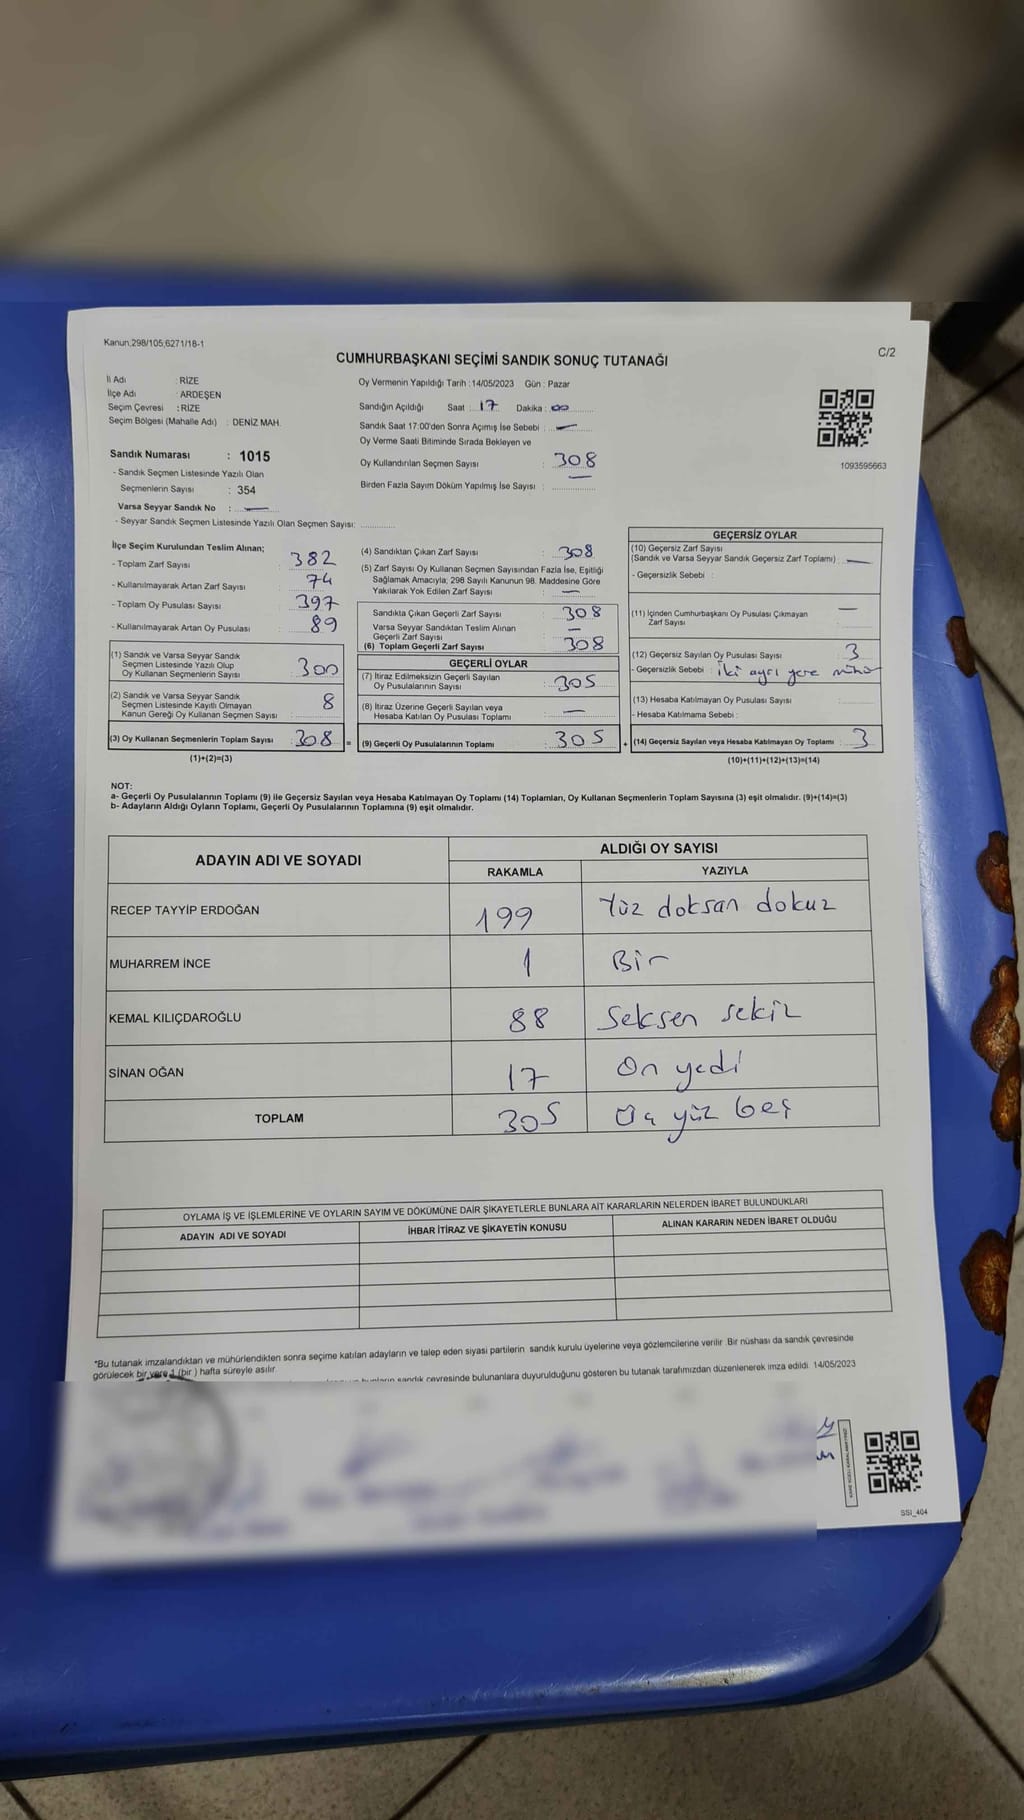 Kanun.298/105;6271/18-1
C/2
CUMHURBAŞKANI SEÇİMİ SANDIK SONUÇ TUTANAĞI
İl Adı : RİZE
İlçe Adı : ARDEŞEN
Seçim Çevresi : RİZE
Seçim Bölgesi (Mahalle Adı) : DENİZ MAH.
Sandık Numarası : 1015
- Sandık Seçmen Listesinde Yazılı Olan
Seçmenlerin Sayısı : 354
Varsa Seyyar Sandık No : —
- Seyyar Sandık Seçmen Listesinde Yazılı Olan Seçmen Sayısı: ............
Oy Vermenin Yapıldığı Tarih :14/05/2023 Gün : Pazar
Sandığın Açıldığı Saat : 17 Dakika : 00
Sandık Saat 17:00'den Sonra Açımış İse Sebebi : —
Oy Verme Saati Bitiminde Sırada Bekleyen ve
Oy Kullandırılan Seçmen Sayısı : 308
Birden Fazla Sayım Döküm Yapılmış İse Sayısı : —
1093595663
İlçe Seçim Kurulundan Teslim Alınan;
- Toplam Zarf Sayısı : 382
- Kullanılmayarak Artan Zarf Sayısı : 74
- Toplam Oy Pusulası Sayısı : 397
- Kullanılmayarak Artan Oy Pusulası : 89
(1) Sandık ve Varsa Seyyar Sandık
Seçmen Listesinde Yazılı Olup
Oy Kullanan Seçmenlerin Sayısı : 300
(2) Sandık ve Varsa Seyyar Sandık
Seçmen Listesinde Kayıtlı Olmayan
Kanun Gereği Oy Kullanan Seçmen Sayısı : 8
(3) Oy Kullanan Seçmenlerin Toplam Sayısı : 308 =
(1)+(2)=(3)
(4) Sandıktan Çıkan Zarf Sayısı : 308
(5) Zarf Sayısı Oy Kullanan Seçmen Sayısından Fazla İse, Eşitliği
Sağlamak Amacıyla; 298 Sayılı Kanunun 98. Maddesine Göre
Yakılarak Yok Edilen Zarf Sayısı : —
Sandıkta Çıkan Geçerli Zarf Sayısı : 308
Varsa Seyyar Sandıktan Teslim Alınan
Geçerli Zarf Sayısı : —
(6) Toplam Geçerli Zarf Sayısı : 308
GEÇERLİ OYLAR
(7) İtiraz Edilmeksizin Geçerli Sayılan
Oy Pusulalarının Sayısı : 305
(8) İtiraz Üzerine Geçerli Sayılan veya
Hesaba Katılan Oy Pusulası Toplamı : —
(9) Geçerli Oy Pusulalarının Toplamı : 305 +
GEÇERSİZ OYLAR
(10) Geçersiz Zarf Sayısı
(Sandık ve Varsa Seyyar Sandık Geçersiz Zarf Toplamı) : —
- Geçersizlik Sebebi :
(11) İçinden Cumhurbaşkanı Oy Pusulası Çıkmayan
Zarf Sayısı : —
(12) Geçersiz Sayılan Oy Pusulası Sayısı : 3
- Geçersizlik Sebebi : İki ayrı yere mühür
(13) Hesaba Katılmayan Oy Pusulası Sayısı : ............
- Hesaba Katılmama Sebebi :
(14) Geçersiz Sayılan veya Hesaba Katılmayan Oy Toplamı : 3
(10)+(11)+(12)+(13)=(14)
NOT:
a- Geçerli Oy Pusulalarının Toplamı (9) ile Geçersiz Sayılan veya Hesaba Katılmayan Oy Toplamı (14) Toplamları, Oy Kullanan Seçmenlerin Toplam Sayısına (3) eşit olmalıdır. (9)+(14)=(3)
b- Adayların Aldığı Oyların Toplamı, Geçerli Oy Pusulalarının Toplamına (9) eşit olmalıdır.
ADAYIN ADI VE SOYADI ALDIĞI OY SAYISI
RAKAMLA YAZIYLA
RECEP TAYYİP ERDOĞAN 199 Yüz doksan dokuz
MUHARREM İNCE 1 Bir
KEMAL KILIÇDAROĞLU 88 Seksen sekiz
SİNAN OĞAN 17 On yedi
TOPLAM 305 Üç yüz beş
OYLAMA İŞ VE İŞLEMLERİNE VE OYLARIN SAYIM VE DÖKÜMÜNE DAİR ŞİKAYETLERLE BUNLARA AİT KARARLARIN NELERDEN İBARET BULUNDUKLARI
ADAYIN ADI VE SOYADI İHBAR İTİRAZ VE ŞİKAYETİN KONUSU ALINAN KARARIN NEDEN İBARET OLDUĞU
*Bu tutanak imzalandıktan ve mühürlendikten sonra seçime katılan adayların ve talep eden siyasi partilerin sandık kurulu üyelerine veya gözlemcilerine verilir. Bir nüshası da sandık çevresinde
görülecek bir yere 1 (bir ) hafta süreyle asılır.
sandık çevresinde bulunanlara duyurulduğunu gösteren bu tutanak tarafımızdan düzenlenerek imza edildi. 14/05/2023
SSI_404